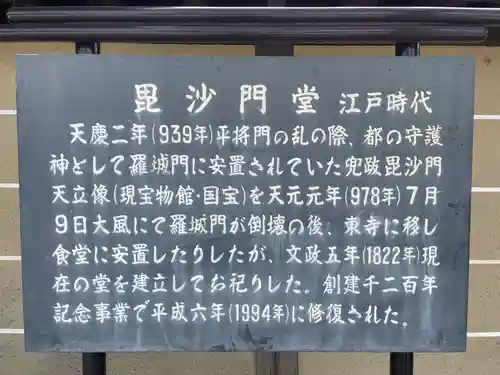 毘沙門堂 江戸時代
天慶二年(939年)平将門の乱の際、都の守護
神として羅城門に安置されていた兜跋毘沙門
天立像(現宝物館・国宝)を天元元年(978年)7月
9日大風にて羅城門が倒壊の後、東寺に移し
食堂に安置したりしたが、文政五年(1822年)現
在の堂を建立してお祀りした。創建千二百年
記念事業で平成六年(1994年)に修復された。